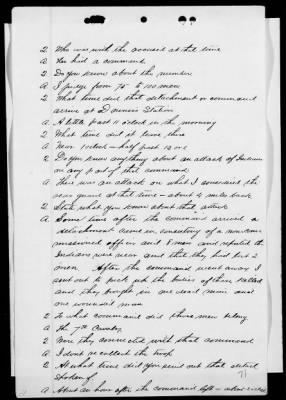 Q Who was with the accused at that time
A He had a command
Q Do you know about the number
A I judge from 75 to 100 men
Q What time did that detachment or command
arrive at Downers Station
A A little past 11 o'clock in the morning
Q What time did it leave there
A Near 1 o'clock - half past 12 or 1
Q Do you know anything about an attack of Indians
on any part of that command
A There was an attack on what I considered the
rear guard at that time - about 4 miles back
Q State what you know about that attack
A Some time after the command arrived a
detachment came in consisting of a non com-
missioned officer and 8 men and reported the
Indians were near and that they had lost 2
men. After the command went away I
sent out to pick up the bodies of those killed
and they brought in one dead man and
one wounded man
Q To what command did those men belong
A The 7th Cavalry
Q Were they connected with that command
A I don't recollect the troop
Q At what time did you send out that detail
spoken of
A About an hour after the command left -
71